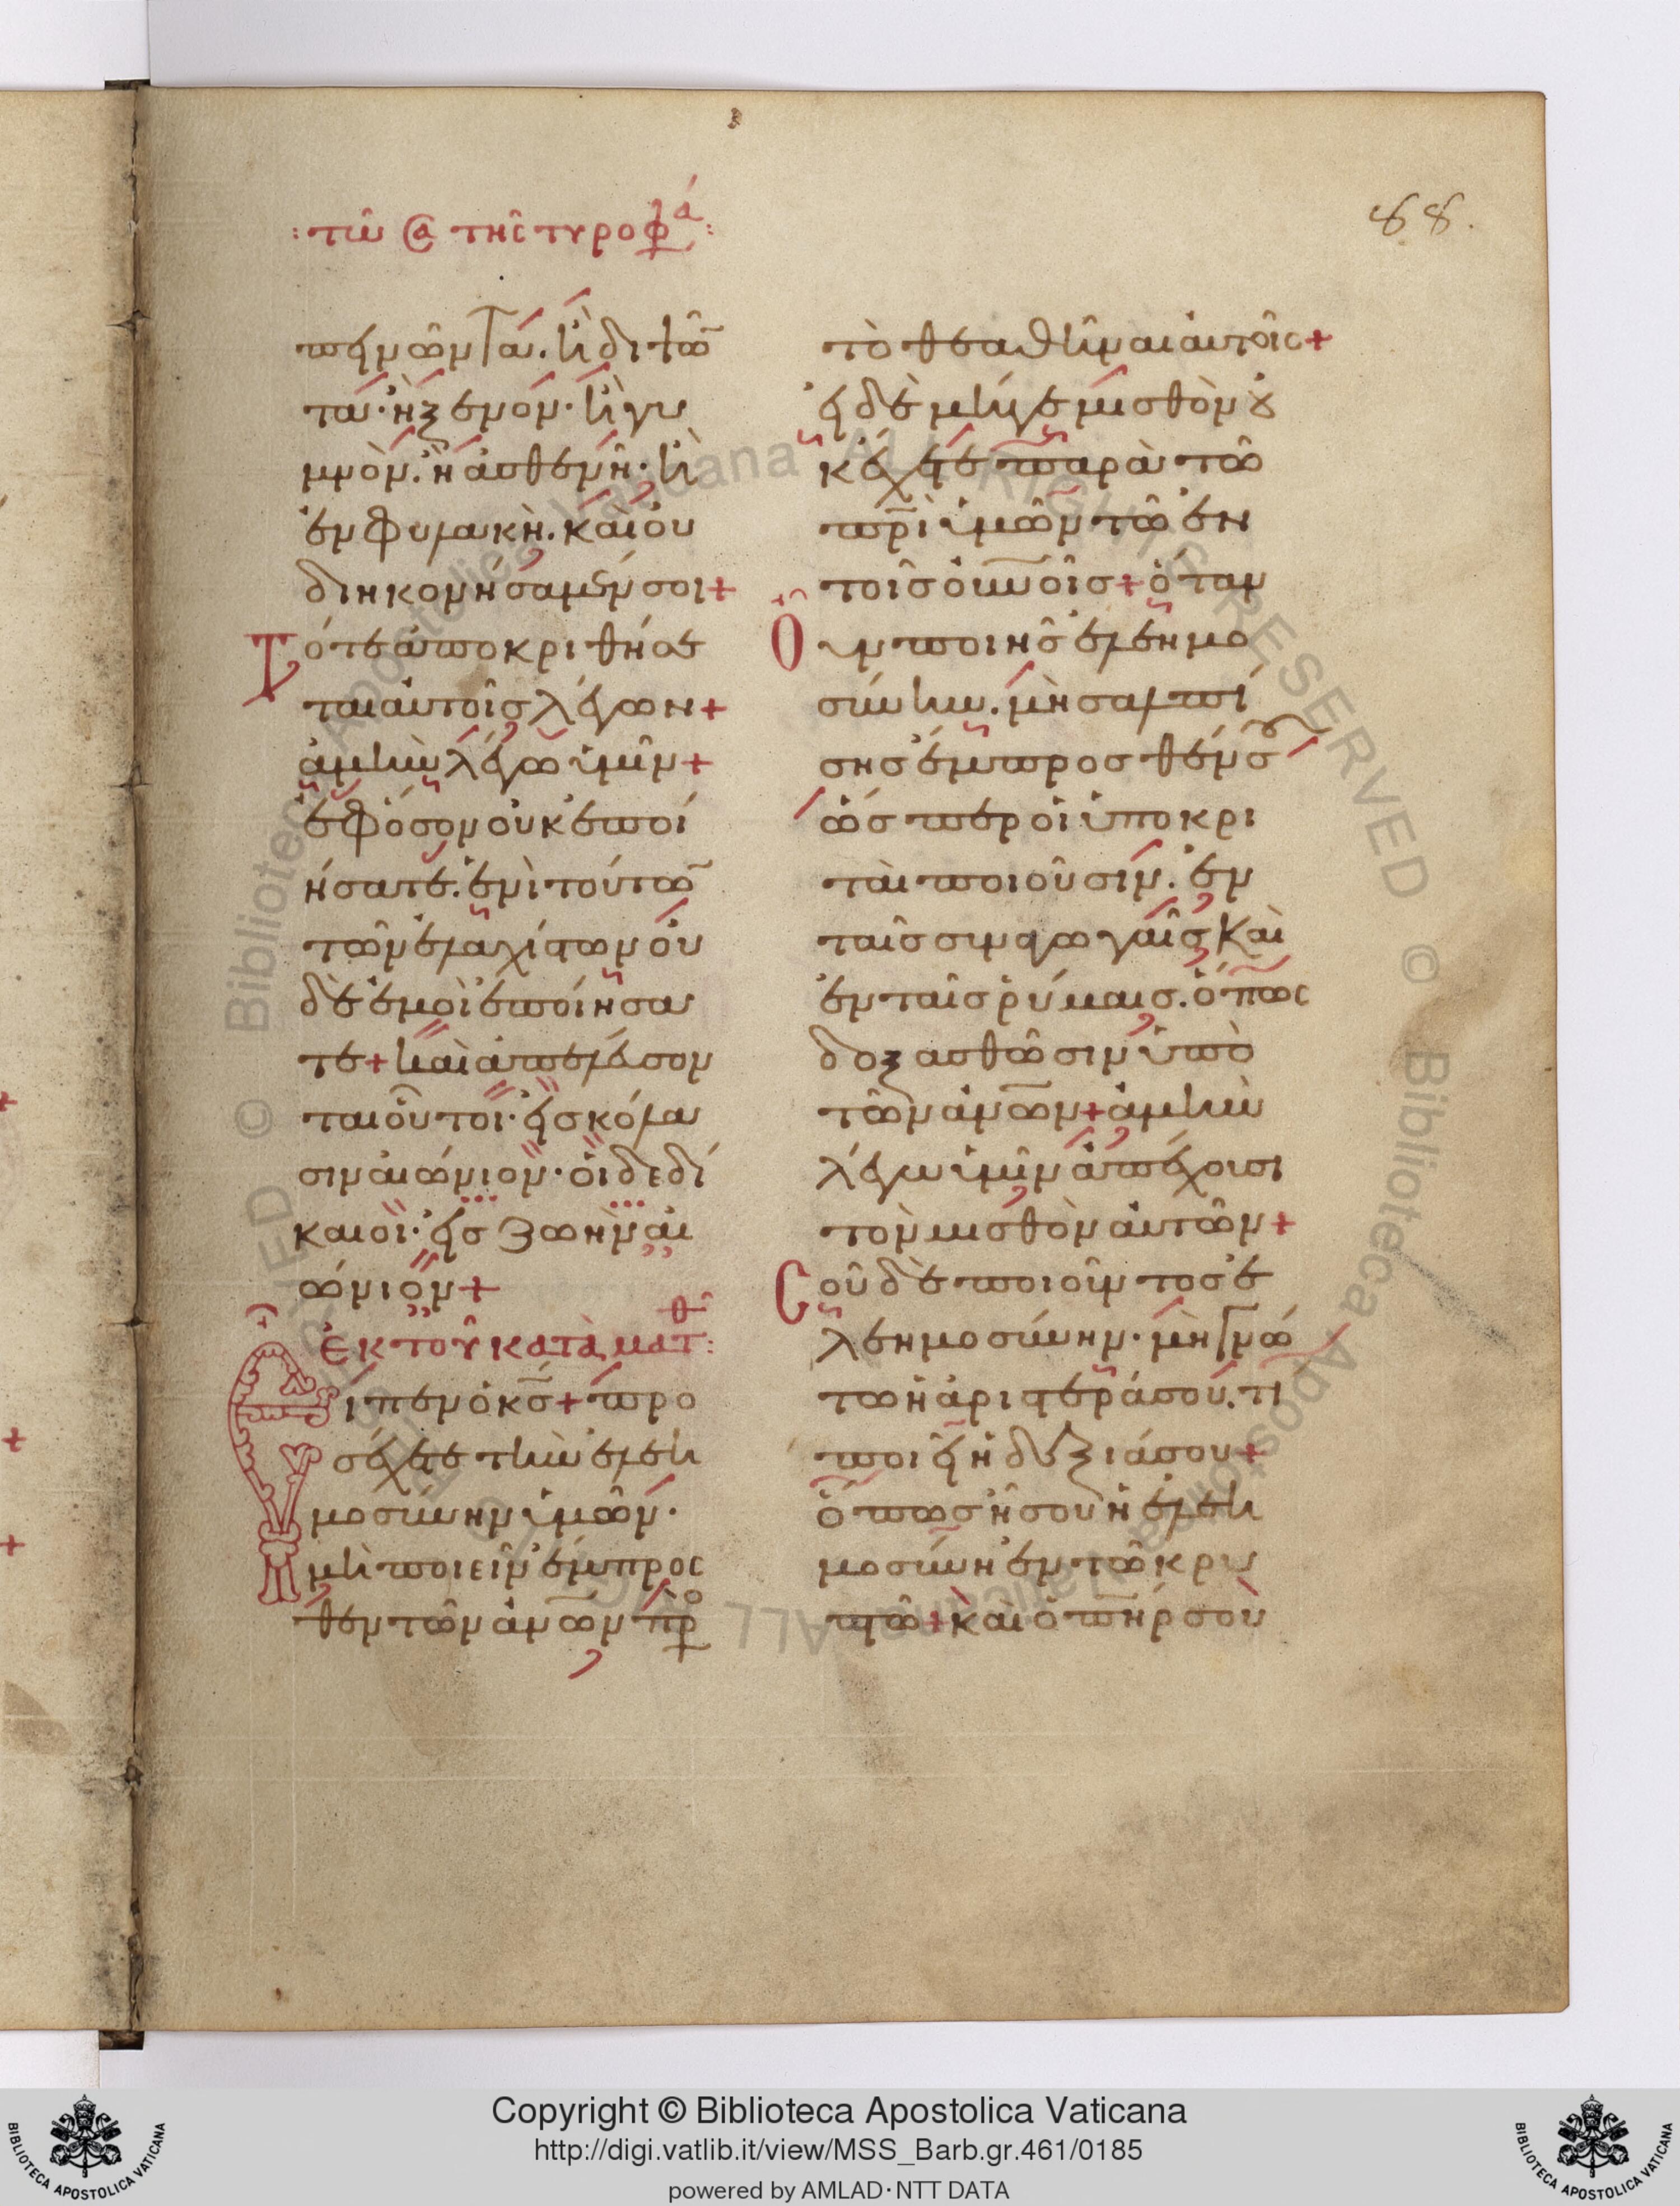 τῶ Σα τῆς τυροφά
88.
πεινῶντα. ἢ διψῶ
τα· ἢ ξένον· ἢ γυ
μνὸν. ἢ ἀσθενῆ· ἢ
ἐν φυλακῆ. καὶ οὐ
διηκονήσαμέν σοι+
Τότε ἀποκριθήσε
ται αὐτοῖς λέγων+
ἀμὴν λέγω ὑμῖν+
ἐφόσον οὐκ ἐποι
ήσατε. ἑνὶ τούτω
τῶν ἐλαχίστων οὐ
δὲ ἐμοὶ ἐποίησα
τε+ καὶ ἀπελέυσον
ται οὗτοι· εἰς κόλα
σιν αἰώνιον· οἱ δὲ δί
καιοι· εἰς ζωὴν αἰ
ώνιον+
ἐκ τοῦ κατὰ ματθ:
Εἶπεν ὁ κς+ προ
σέχετε τὴν ἐλεη
μοσύνην ὑμῶν.
μὴ ποιεῖν ἔμπροσ
θεν τῶν ἀνων πρ
τὸ θεαθῆναι αὐτοῖς+
εἰ δὲ μήγε μισθὸν οὐ
κ ἔχετε παρὰ τῶ
πρὶ ὑμῶν τῶ ἐν
τοῖς οὐνοῖς+ ὅταν
Οὖν ποιῆς ἐλεημο
σύνην. μὴ σαλπί
σης ἔμπροσθέν σου
ὥσπερ οἱ ὑποκρι
ταὶ ποιοῦσιν. ἐν
ταῖς συναγωγαῖς καὶ
ἐν ταῖς ῥύμαις. ὅπως
δοξασθῶσιν ὑπὸ
τῶν ἀνων+ ἀμὴν
λέγω ὑμῖν ἀπέχουσι
τὸν μισθὸν αὐτῶν+
Σοῦ δὲ ποιοῦντος ἐ
λεημοσύνην· μὴ γνώ
τω ἡ ἀριστερά σου. τί
ποιεῖ ἡ δεξιά σου+
ὅπως ἦ σου ἡ ἐλεη
μοσύνη ἐν τῶ κρυ
πτῶ+ καὶ ὁ πηρ σοὺ
© Biblioteca Apostolica Vaticana ALL RIGHTS RESERVED
Copyright © Biblioteca Apostolica Vaticana
http://digi.vatlib.it/view/MSS_Barb.gr.461/0185
powered by AMLAD·NTT DATA
BIBLIOTECA APOSTOLICA VATICANA
BIBLIOTECA APOSTOLICA VATICANA